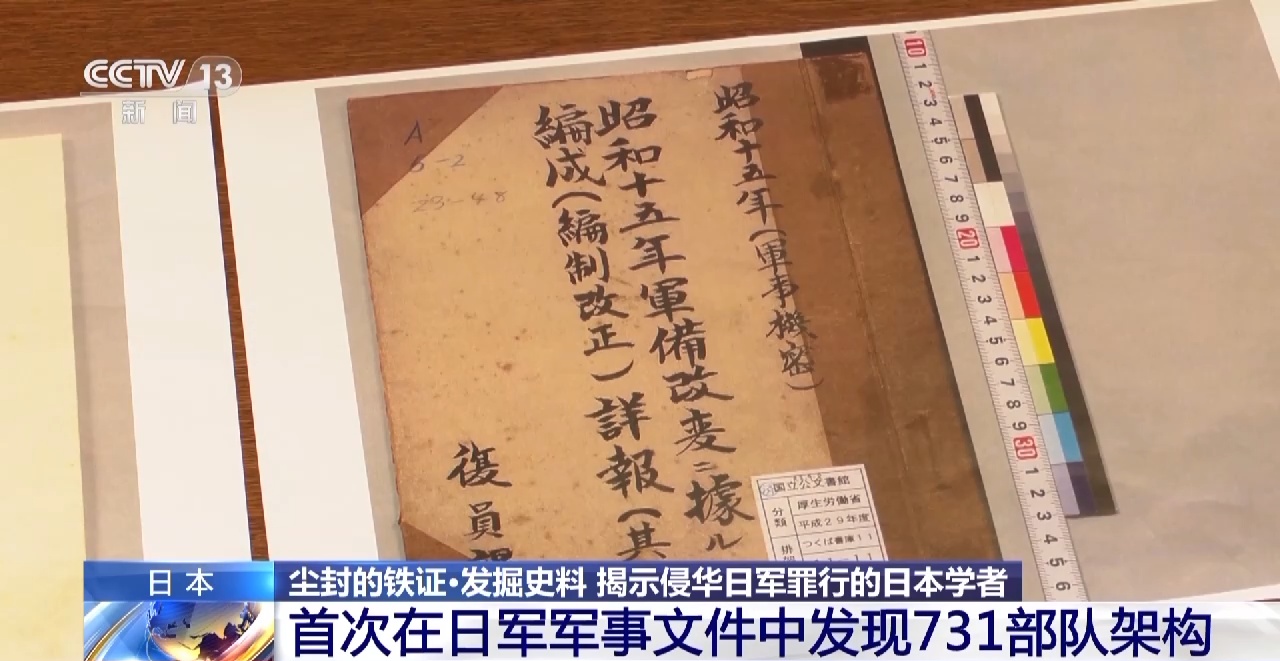 CCTV 13
新闻
昭和十五年(軍事機密)
昭和十五年軍備改変ニ據ル
編成(編制改正)詳報(其
復員課
A
6-2
23-48
国立公文書館
分類
厚生労働省
平成29年度
つくば書庫11
排架
10 1 2 3 4 5 6 7 8 9 20 1 2 3 4 5 6 7 8 9 30 1 2 3 4 5 6
日本
尘封的铁证·发掘史料 揭示侵华日军罪行的日本学者
首次在日军军事文件中发现731部队架构